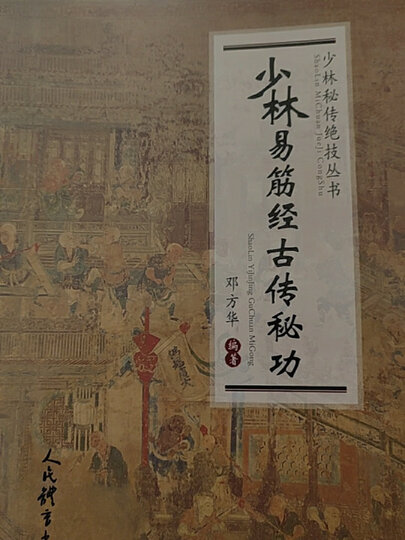 少林秘传绝技丛书
ShaoLin MiChuan JueJi CongShu
少林易筋经古传秘功
ShaoLin YiJinJing GuChuan MiGong
邓方华
编著
人民体育